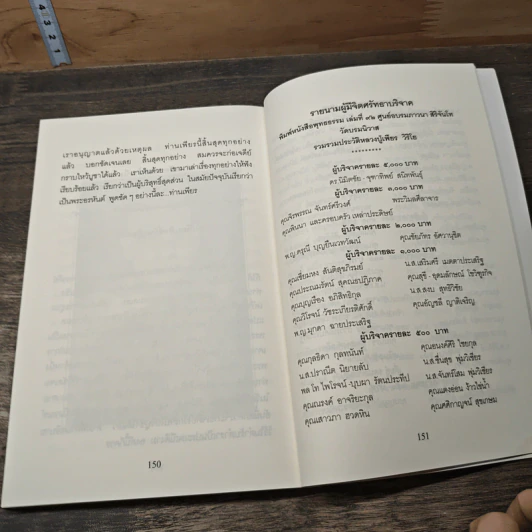 4 3 2 1
เราอนุญาตแล้วด้วยเหตุผล ท่านเพียรนี้สิ้นสุดทุกอย่าง
แล้ว บอกชัดเจนเลย สิ้นสุดทุกอย่าง สมควรจะก่อเจดีย์
กราบไหว้บูชาได้แล้ว เราเห็นด้วย เขามาเล่าเรื่องทุกอย่างให้ฟัง
เรียบร้อยแล้ว เรียกว่าเป็นผู้บริสุทธิ์สุดส่วน ในสมัยปัจจุบันเรียกว่า
เป็นพระอรหันต์ พูดชัด ๆ อย่างนี้ละ..ท่านเพียร
150
รายนามผู้มีจิตศรัทธาบริจาค
พิมพ์หนังสือพุทธธรรม เล่มที่ ๙๒ ศูนย์อบรมภาวนา สิริจันโท
วัดบรมนิวาส
รวบรวมประวัติหลวงปู่เพียร วิริโย
*********
ผู้บริจาครายละ ๕,๐๐๐ บาท
ดร.นิมิตชัย - จุฑาทิพย์ สนิทพันธุ์
ผู้บริจาครายละ ๓,๐๐๐ บาท
คุณจิรพรรณ จันทร์ศรีวงศ์ พระวิมลศีลาจาร
คุณพินนา และครอบครัว เหล่าประดิษฐ์
ผู้บริจาครายละ ๒,๐๐๐ บาท
พ.ญ.ดรุณี บุญยืนเวทวัฒน์ คุณชัยภัทร อัศวานุชิต
ผู้บริจาครายละ ๑,๐๐๐ บาท
คุณเซี่ยมหง สันติสุขภิรมย์ น.ส.เสริมศรี เมตตาประเสริฐ
คุณประณมรัตน์ สุคณธปฏิภาค คุณสุธี - อุดมลักษณ์ โชวิฑูรกิจ
คุณบุญเรือง อภิสิทธิกุล น.ส.สงบ สุทธิวิชัย
คุณวิโรจน์ วัชระเกียรติศักดิ์ คุณอัญชลี ญาติเจริญ
พ.ญ.มุกดา ฉายประเสริฐ
ผู้บริจาครายละ ๕๐๐ บาท
คุณกุลธิดา กุลทนันท์ คุณอนงค์ศิริ ไชยกุล
น.ส.ปราณีต นิยายลับ น.ส.ชื่นสุข พุ่มวิเชียร
พล.โท ไพโรจน์-บุบผา รัตนประทีป น.ส.จันทร์โสม พุ่มวิเชียร
คุณณรงค์ อาจริยะกุล คุณแตงอ่อน ง้าวไข่น้ำ
คุณเสาวภา ฮวดหิน คุณศศิกาญจน์ สุขเกษม
151